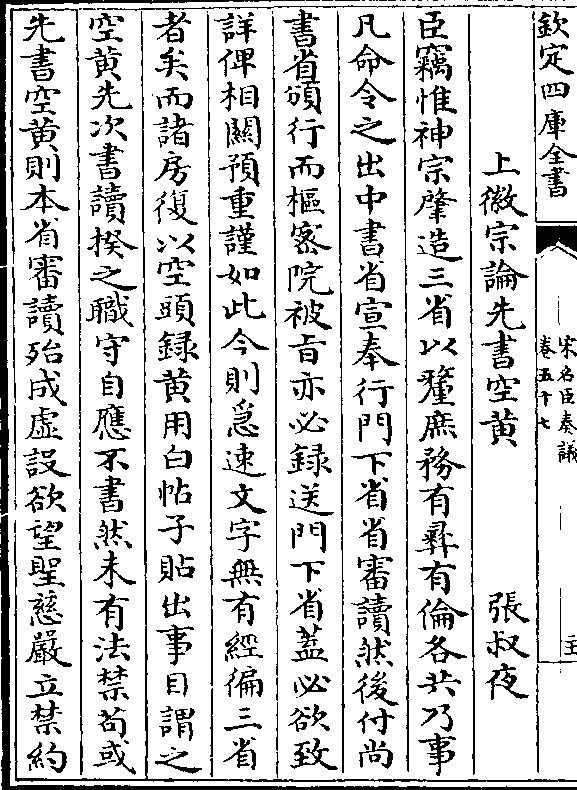 欽定四庫全書
宋名臣奏議
卷五十七
上徽宗論先書空黄　張叔夜
臣竊惟神宗肇造三省以釐庶務有彛有倫各共乃事
凡命令之出中書省宣奉行門下省省審讀然後付尚
書省頒行而樞宻院被㫖亦必録送門下省蓋必欲致
詳俾相關預重謹如此今則急速文字無有經徧三省
者矣而諸房復以空頭録黄用白帖子貼出事目謂之
空黄先次書讀揆之職守自應不書然未有法禁茍或
先書空黄則本省審讀殆成虚設欲望聖慈嚴立禁約